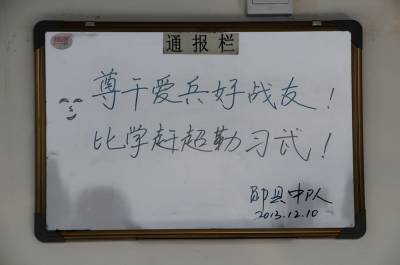 通报栏
尊干爱兵好战友！
比学赶超勤习武！
郧县中队
2013.12.10